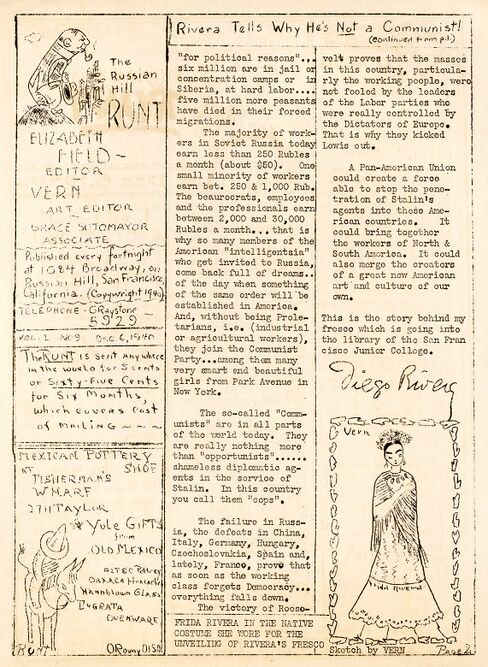 Rivera Tells Why He's Not a Communist!
(Continued from p.1.)
The
Russian
Hill
RUNT
ELIZABETH
FIELD-
EDITOR
VERN
ART EDITOR
GRACE SOTOMAYOR
ASSOCIATE
Published every fortnight
at 1084 Broadway, on
Russian Hill, San Francisco,
California. (Copyright 1940)
TELEPHONE - GRaystone
5929
VOL. 1 No 9 Dec 6, 1940
The RUNT is sent anywhere
in the world for 5 cents
or Sixty-Five Cents
for Six Months,
which covers cost
of mailing ~ ~ ~
MEXICAN POTTERY
SHOP
AT
FISHERMAN'S
WHARF
2711 TAYLOR
Yule GIFTS
from
OLD MEXICO
AZTEC
OAXACA
Handblown Glass
OVENWARE
RUNT
"for political reasons"...
six million are in jail or
concentration camps or in
Siberia, at hard labor....
five million more peasants
have died in their forced
migrations.
The majority of work-
ers in Soviet Russia today
earn less than 250 Rubles
a month (about $50). One
small minority of workers
earn bet. 250 & 1,000 Rub.
The beaurocrats, employees
and the professionals earn
between 2,000 and 30,000
Rubles a month...that is
why so many members of the
American "intelligentsia"
who get invited to Russia,
come back full of dreams..
of the day when something
of the same order will be
established in America.
And, without being Prole-
tarians, i.e. (industrial
or agricultural workers),
they join the Communist
Party...among them many
very smart end beautiful
girls from Park Avenue in
New York.
The so-called "Comm-
unists" are in all parts
of the world today. They
are really nothing more
than "opportunists"......
shameless diplomatic ag-
ents in the service of
Stalin. In this country
you call them "cops".
The failure in Russ-
ia, the defeats in China,
Italy, Germany, Hungary,
Czechoslovakia, Spain and,
lately, France, prove that
as soon as the working
class forgets Democracy...
everything falls down.
The victory of Roose-
FRIDA RIVERA IN THE NATIVE
COSTUME SHE WORE FOR THE
UNVEILING OF RIVERA'S FRESCO
velt proves that the masses
in this country, particula-
rly the working people, were
not fooled by the leaders
of the Labor parties who
were really controlled by
the Dictators of Europe.
That is why they kicked
Lewis out.
A Pan-American Union
could create a force
able to stop the pene-
tration of Stalin's
agents into these Ame-
rican countries. It
could bring together
the workers of North &
South America. It could
also merge the creators
of a great new American
art and culture of our
own.
This is the story behind my
fresco which is going into
the library of the San Fran
cisco Junior College.
Diego Rivera
Vern
Frida Rivera
Sketch by VERN
Page 2